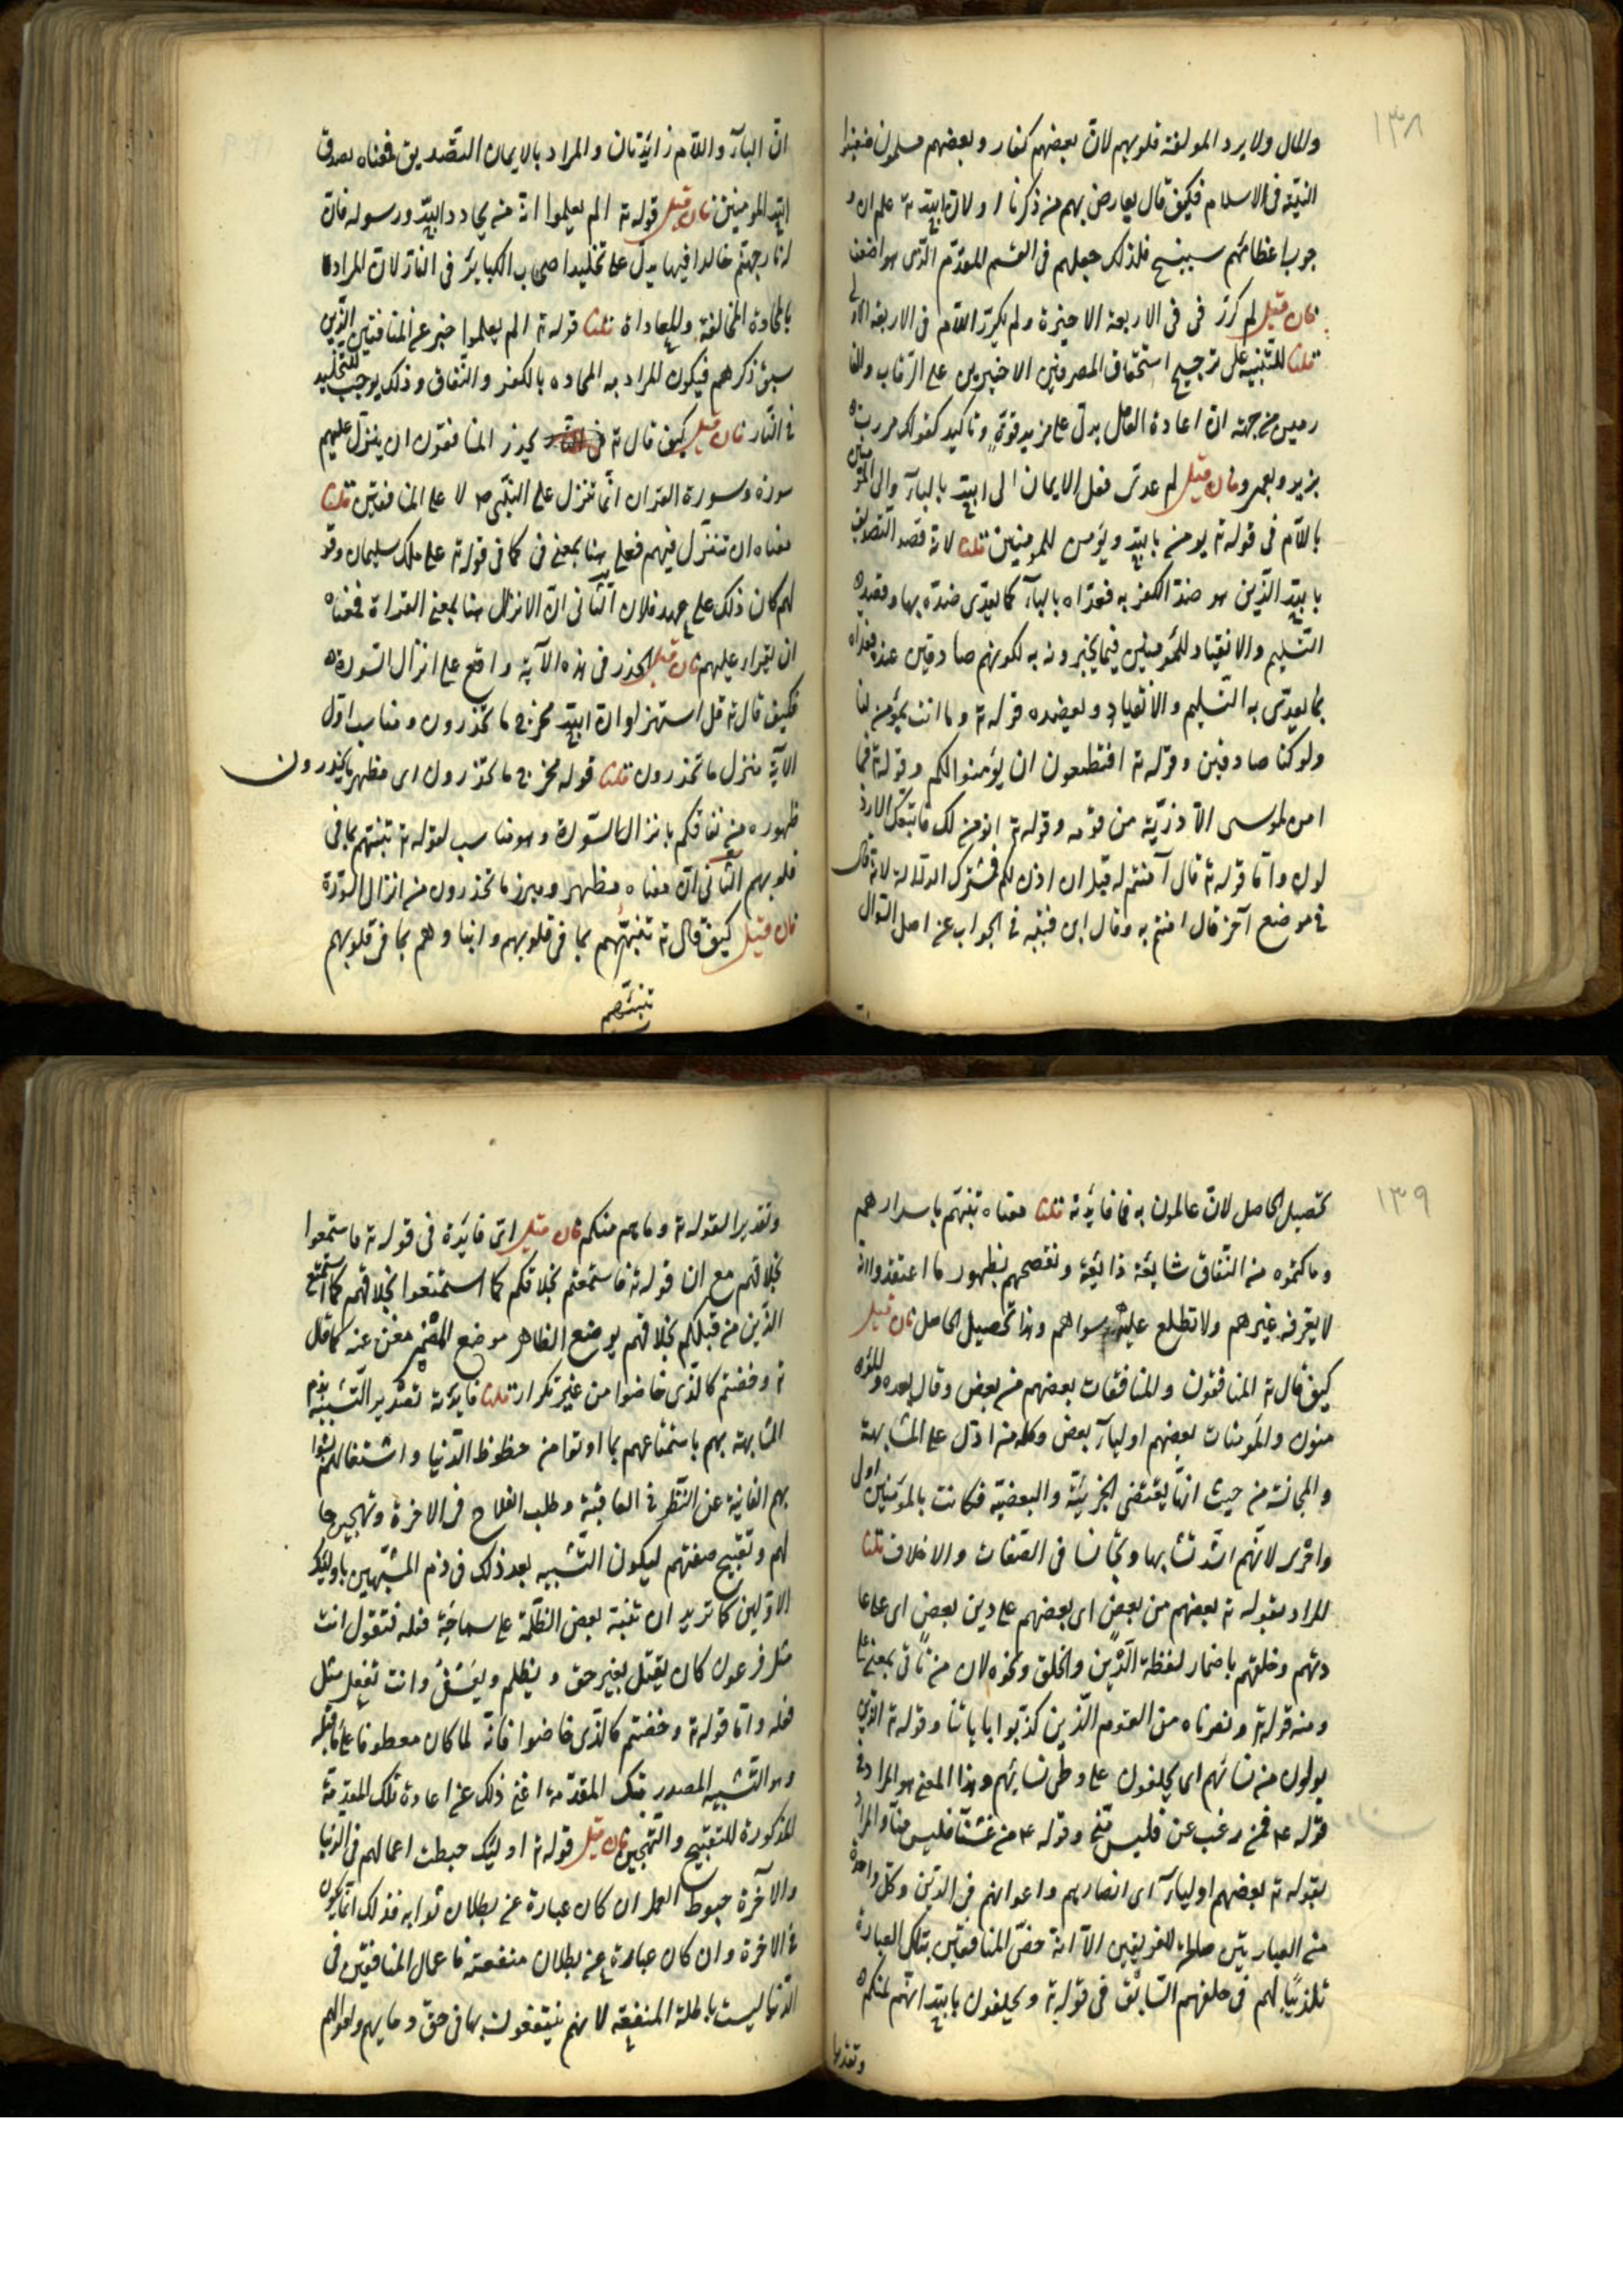 ١٣٨
والمال ولا يرد المولفة قلوبهم لان بعضهم كفار وبعضهم مسلمون ضعيفوا
النية فى الاسلام فكيف قال يعارض بهم من ذكرنا ولان الله ته علم ان و
جوب اعظامهم سينسخ فلذلك جعلهم فى القسم المقدم الذى هو اضعف
فان قيل لم كرر فى فى الاربعة الاخيرة ولم يكرر اللام فى الاربعة الاولى
قلنا للتنبيه على ترجيح استحقاق المصرفين الاخيرين على الرقاب والغا
رمين من جهة ان اعادة العامل يدل على مزيد قوة وتاكيد كقولك مررت
بزيد وبعمرو فان قيل لم عدى فعل الايمان الى الله بالبآء والى المؤمنين
باللام فى قوله ته يومن بالله ويؤمن للمومنين قلنا لانه قصد التصديق
بالله الذى هو ضد الكفر به فعداه بالبآء كما يعدى ضده بها وقصد
التسليم والانقياد للمؤمنين فيما يخبرونه به لكونهم صادقين عنده فعداه
بما يعدى به التسليم والانقياد ويعضده قوله ته وما انت بمؤمن لنا
ولو كنا صادقين وقوله ته افتطمعون ان يؤمنوا لكم وقوله ته فما
امن لموسى الا ذرّية من قومه وقوله ته انومن لك واتبعك الارذ
لون واما قوله ته قال آمنتم له قبل ان اذن لكم فمشترك الدلالة لانه قال
فى موضع آخر قال امنتم به وقال ابن قتيبه فى الجواب عن اصل السوال
ان
ان البآء واللام زائدتان والمراد بالايمان التصديق فمعناه يصدق
الله المومنين فان قيل قوله ته الم يعلموا انه من يحادد الله ورسوله فان
له نار جهنم خالدا فيها يدل على تخليد اصحاب الكبائر فى النار لان المراد
بالمحادة المخالفة والمعاداة قلنا قوله ته الم يعلموا خبر عن المنافقين الذين
سبق ذكرهم فيكون المراد به المحاده بالكفر والنفاق وذلك يوجب التخليد
فى النار فان قيل كيف قال ته يحذر المنافقون ان ينزل عليهم
سورة وسورة القران انما تنزل على النبى ص لا على المنافقين قلنا
معناه ان تنزل فيهم فعلى هنا بمعنى فى كما فى قوله ته على ملك سليمان وقو
لهم كان ذلك على عهد فلان الثانى ان الانزال هنا بمعنى القراة فمعناه
ان يقرا عليهم فان قيل الحذر فى هذه الآية واقع على انزال السورة
فكيف قال ته قل استهزئوا ان الله مخرج ما تحذرون ومناسب اول
الآية منزل ما تحذرون قلنا قوله مخرج ما تحذرون اى مظهر ما تحذرون
ظهوره من نفاقكم بانزال السورة وهو مناسب لقوله ته تنبئهم بما فى
قلوبهم الثانى ان معناه مظهر ومبرز ما تحذرون من انزال السورة
فان قيل كيف قال ته تنبئهم بما فى قلوبهم وانبا وهم بما فى قلوبهم
تنبئهم
١٣٩
تحصيل الحاصل لان عالمون به فما فائدته قلنا معناه تنبئهم باسرارهم
وما كتموه من النفاق شائعة ذائعة وتفضحهم بظهور ما اعتقدوا انه
لا يعرفه غيرهم ولا تطلع عليه سواهم وهذا تحصيل الحاصل فان قيل
كيف قال ته المنافقون والمنافقات بعضهم من بعض وقال بعده والمؤ
منون والمؤمنات بعضهم اوليآء بعض وكلمة من ادل على المشابهة
والمجانسة من حيث انها تقتضى الجزئية والبعضية فكانت بالمؤمنين اولى
واحرى لانهم اشد تشابها وتجانسا فى الصفات والاخلاق قلنا
المراد بقوله ته بعضهم من بعض اى بعضهم على دين بعض اى على عا
دتهم وخلقهم باضمار لفظة الدين والخلق ونحوه لان من تاتى بمعنى على
ومنه قوله ته ونصرناه من القوم الذين كذبوا باياتنا وقوله ته الذين
يولون من نسائهم اى يحلفون على وطى نسائهم وهذا المعنى هو المراد فى
قوله ع فمن رغب عن فليس منى وقوله ع من غشنا فليس منا والمراد
بقوله ته بعضهم اوليآء اى انصارهم واعوانهم فى الدين وكل واحدة
من العبارتين صالحة للفريقين الا انه خص المنافقين بتلك العبارة
تكذيبا لهم فى حلفهم السابق فى قوله ته ويحلفون بالله انهم لمنكم
وتقديرا
وتقديرا لقوله ته وما هم منكم فان قيل اى فائدة فى قوله ته فاستمتعوا
بخلاقهم مع ان قوله ته فاستمتعتم بخلاقكم كما استمتعوا بخلاقهم كما استمتع
الذين من قبلكم بخلاقهم بوضع الظاهر موضع المضمر مغن عنه كما قال
ته وخضتم كالذى خاضوا من غير تكرار قلنا فائدته تصدير التشبيه بذم
المشابهة بهم باستمتاعهم بما اوتوا من حظوظ الدنيا واشتغالهم بشهوا
بهم الفانية عن النظر فى العاقبة وطلب الفلاح فى الاخرة وتهجين حا
لهم وتقبيح صفتهم ليكون التشبيه بعد ذلك فى ذم المشبهين باولئك
الاولين كما تريد ان تنبه بعض الظلمة على سماجة فعله فتقول انت
مثل فرعون كان يقتل بغير حق ويظلم ويفسق وانت تفعل مثل
فعله واما قوله ته وخضتم كالذى خاضوا فانه لما كان معطوفا على ما قبله
وهو التشبيه المصدر بتلك المقدمة اغنى ذلك عن اعادة تلك المقدمة
المذكورة للتقبيح والتهجين فان قيل قوله ته اولئك حبطت اعمالهم فى الدنيا
والآخرة حبوط العمل ان كان عبارة عن بطلان ثوابه فذلك انما يكون
فى الاخرة وان كان عبارة عن بطلان منفعته فاعمال المنافقين فى
الدنيا ليست باطلة المنفعة لانهم ينتفعون بها فى حق دمايهم واموالهم